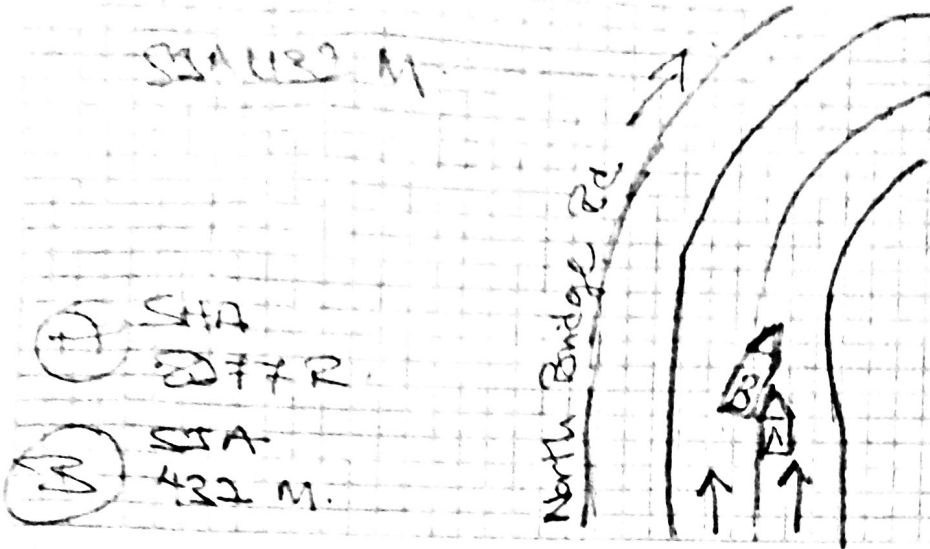 SJA 432 M
SHA
2077 R
B
SJA
432 M.
North Bridge Rd
B
A